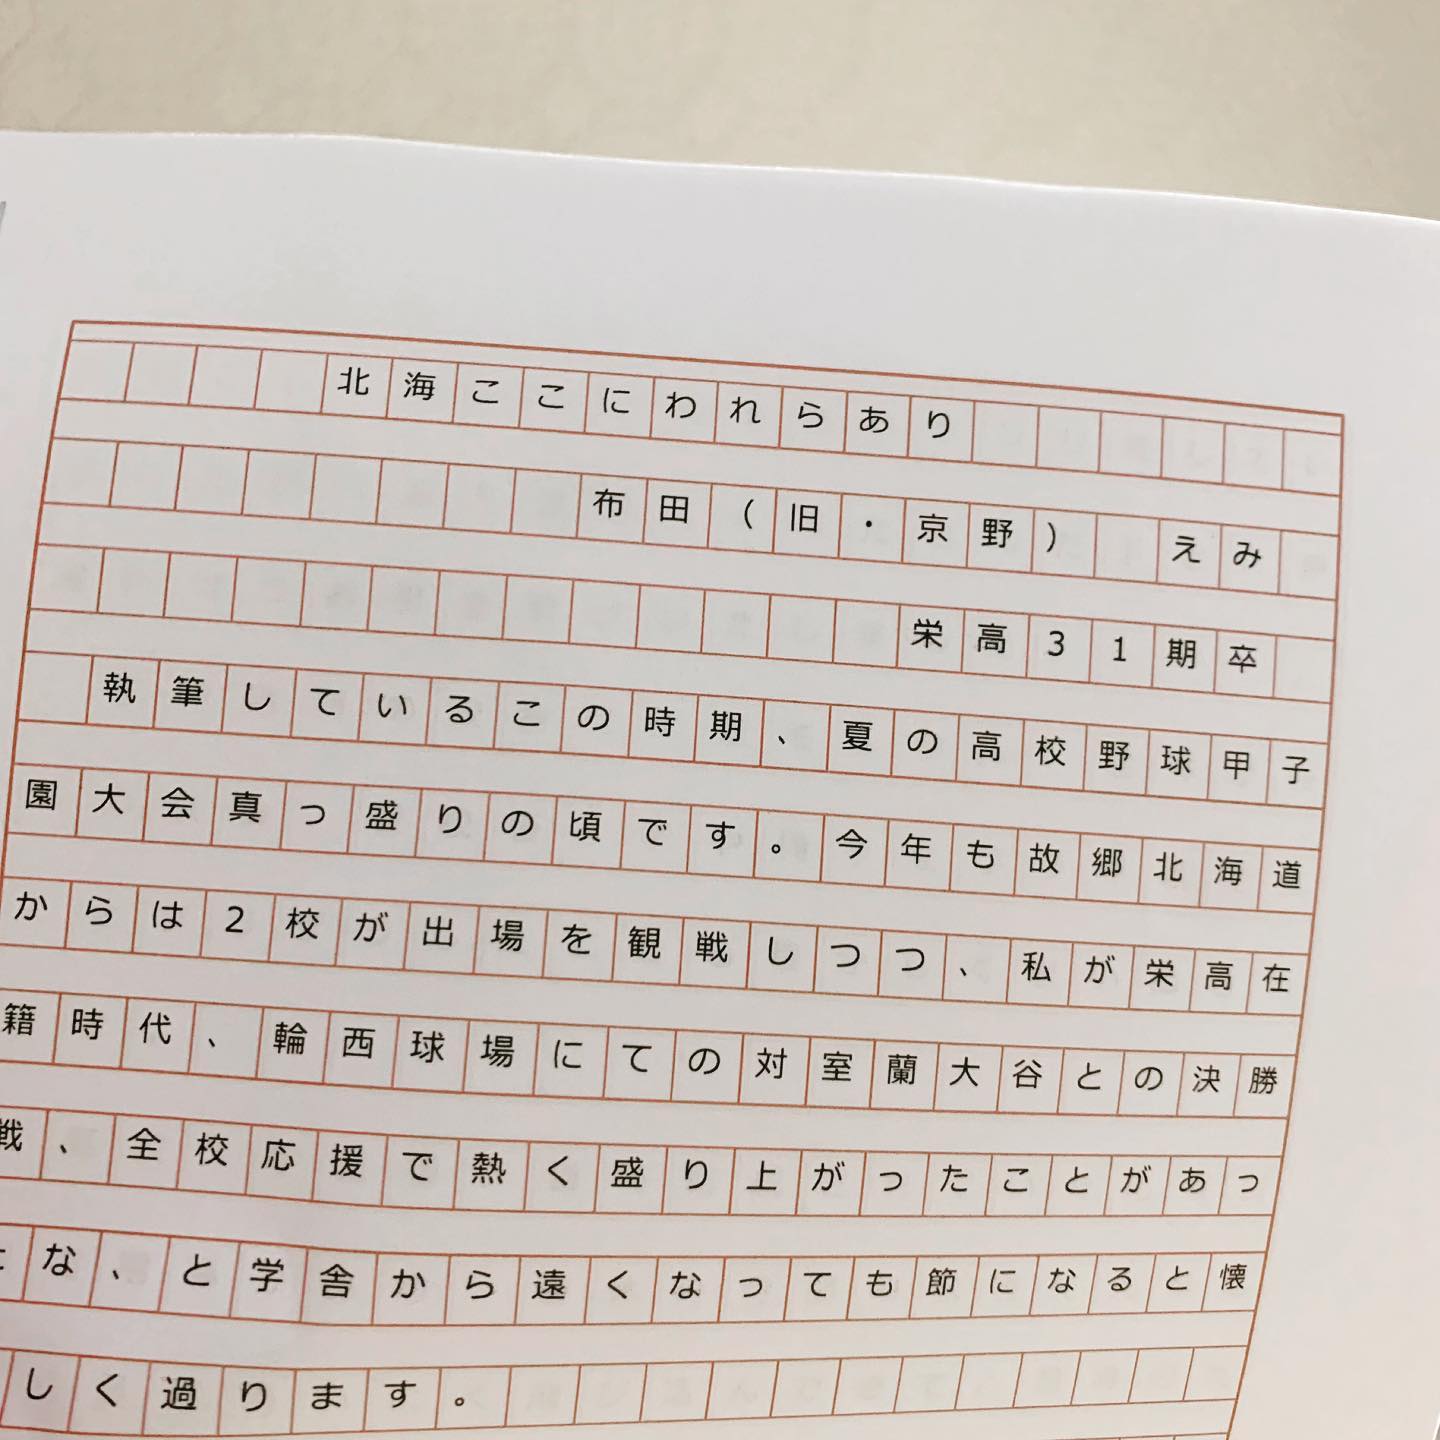 北海ここにわれらあり
布田（旧・京野） えみ
栄高31期卒
執筆している この時期、夏の高校野球甲子
園大会真っ盛りの頃です。今年も故郷北海道
からは2校が出場を観戦しつつ、私が栄高在
籍時代、輪西球場にての対室蘭大谷との決勝
戦、全校応援で熱く盛り上がったことがあっ
たな、と学舎から遠くなっても節になると懐
しく過ります。